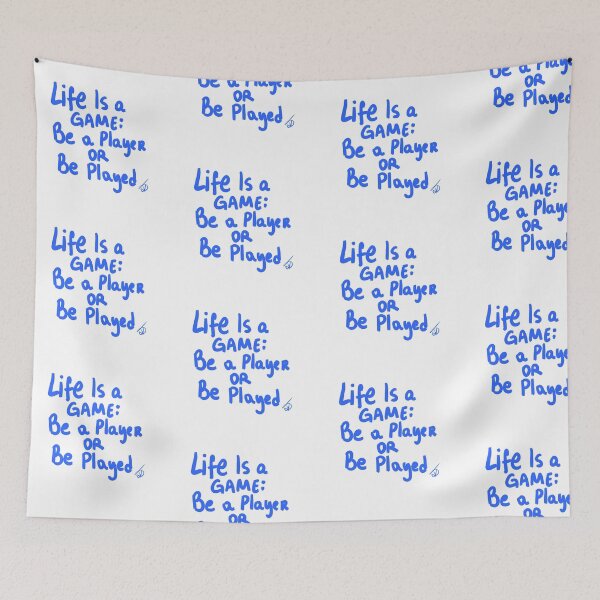 Life Is a
GAME:
Be a Player
OR
Be Played
Life Is a
GAME:
Be a Player
OR
Be Played
Life Is a
GAME:
Be a Player
OR
Be Played
Be a Player
OR
Be Played
Life Is a
GAME:
Be a Player
OR
Be Played
Life Is a
GAME:
Be a Player
OR
Be Played
Life Is a
GAME:
Be a Player
OR
Life Is a
GAME:
Be a Player
OR
Be Played
Life Is a
GAME:
Be a Player
OR
Be Played
Life Is a
GAME:
Be a Player
OR
Be Played
Be a Playe
OR
Be Played
Life Is a
GAME:
Be a Playe
OR
Be Played
Life Is a
GAME:
Be a Playe
OR
Be Played
Life Is a
GAME:
Be a Playe
OR